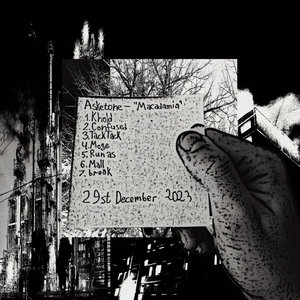 Asketone - "Macadamia"
1. Khold
2. Confused
3. TackTack
4. Mose
5. Run as
6. Mall
7. break
29st December 2023